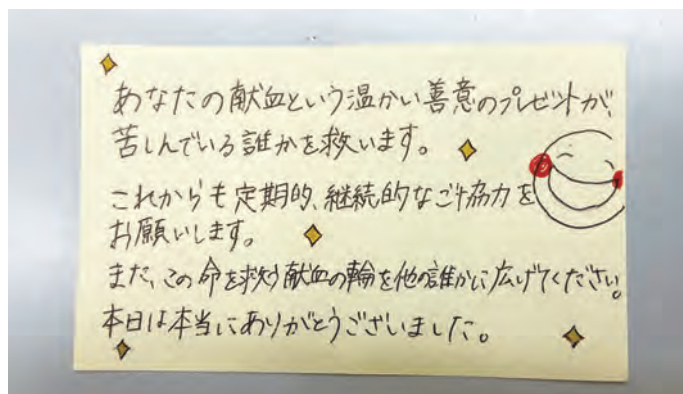 あなたの献血という温かい善意のプレゼントが、
苦しんでいる誰かを救います。
これからも定期的、継続的なご協力を
お願いします。
また、この命を救う献血の輪を他の誰かに広げてください。
本日は本当にありがとうございました。